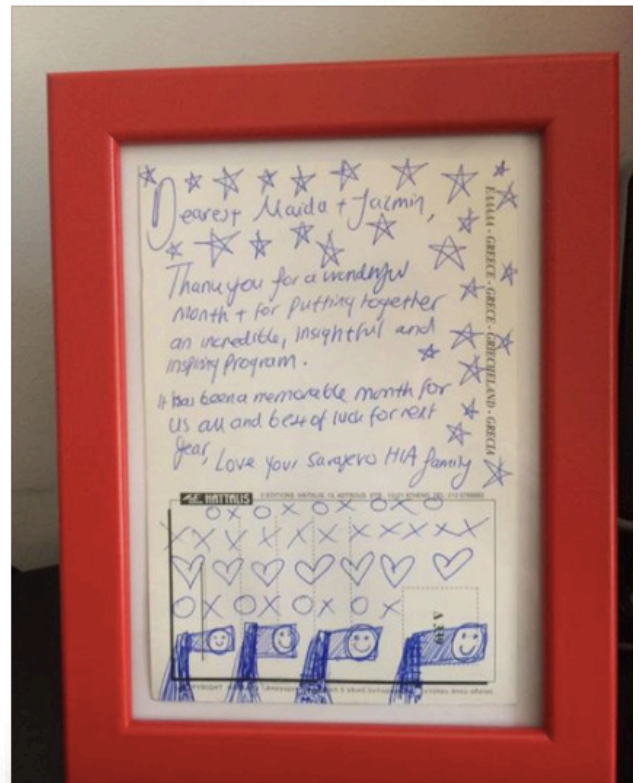 Dearest Maida + Jazmin,
Thank you for a wonderful
month + for putting together
an incredible, insightful and
inspiring program.
It has been a memorable month for
us all and best of luck for next
year, Love your Sarajevo HIA family
ΕΛΛΑΔΑ - GREECE - GRECE - GRIECHELAND - GRECIA
HAITALIS
EDITIONS HAITALIS
ATHENS
O X O X O X O X O
X X X X X X X X X X
O X O X O X O X
Δ 339
COPYRIGHT